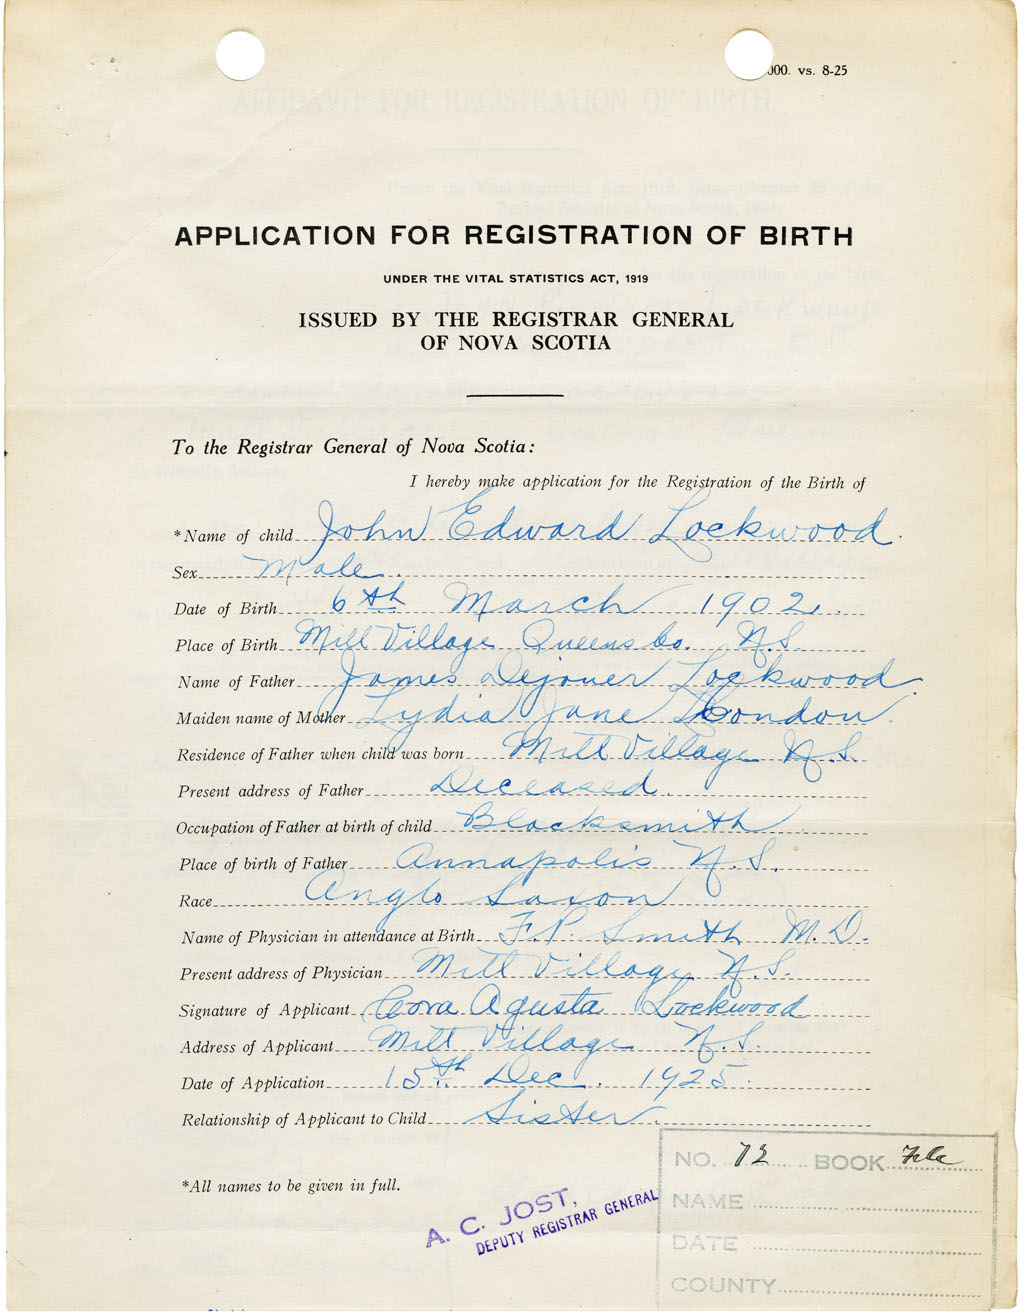 000. vs. 8-25
APPLICATION FOR REGISTRATION OF BIRTH
UNDER THE VITAL STATISTICS ACT, 1919
ISSUED BY THE REGISTRAR GENERAL
OF NOVA SCOTIA
To the Registrar General of Nova Scotia:
I hereby make application for the Registration of the Birth of
*Name of child John Edward Lockwood.
Sex Male
Date of Birth 6th March 1902.
Place of Birth Mill Village Queens Co. N.S.
Name of Father James Dejouer Lockwood
Maiden name of Mother Lydia Jane Condon.
Residence of Father when child was born Mill Village N.S.
Present address of Father Deceased.
Occupation of Father at birth of child Blacksmith
Place of birth of Father Annapolis N.S.
Race Anglo Saxon
Name of Physician in attendance at Birth F.P. Smith M.D.
Present address of Physician Mill Village N.S.
Signature of Applicant Cora Agusta Lockwood
Address of Applicant Mill Village N.S.
Date of Application 15th Dec. 1925.
Relationship of Applicant to Child Sister.
*All names to be given in full.
A. C. JOST,
DEPUTY REGISTRAR GENERAL
NO. 72 BOOK File
NAME
DATE
COUNTY